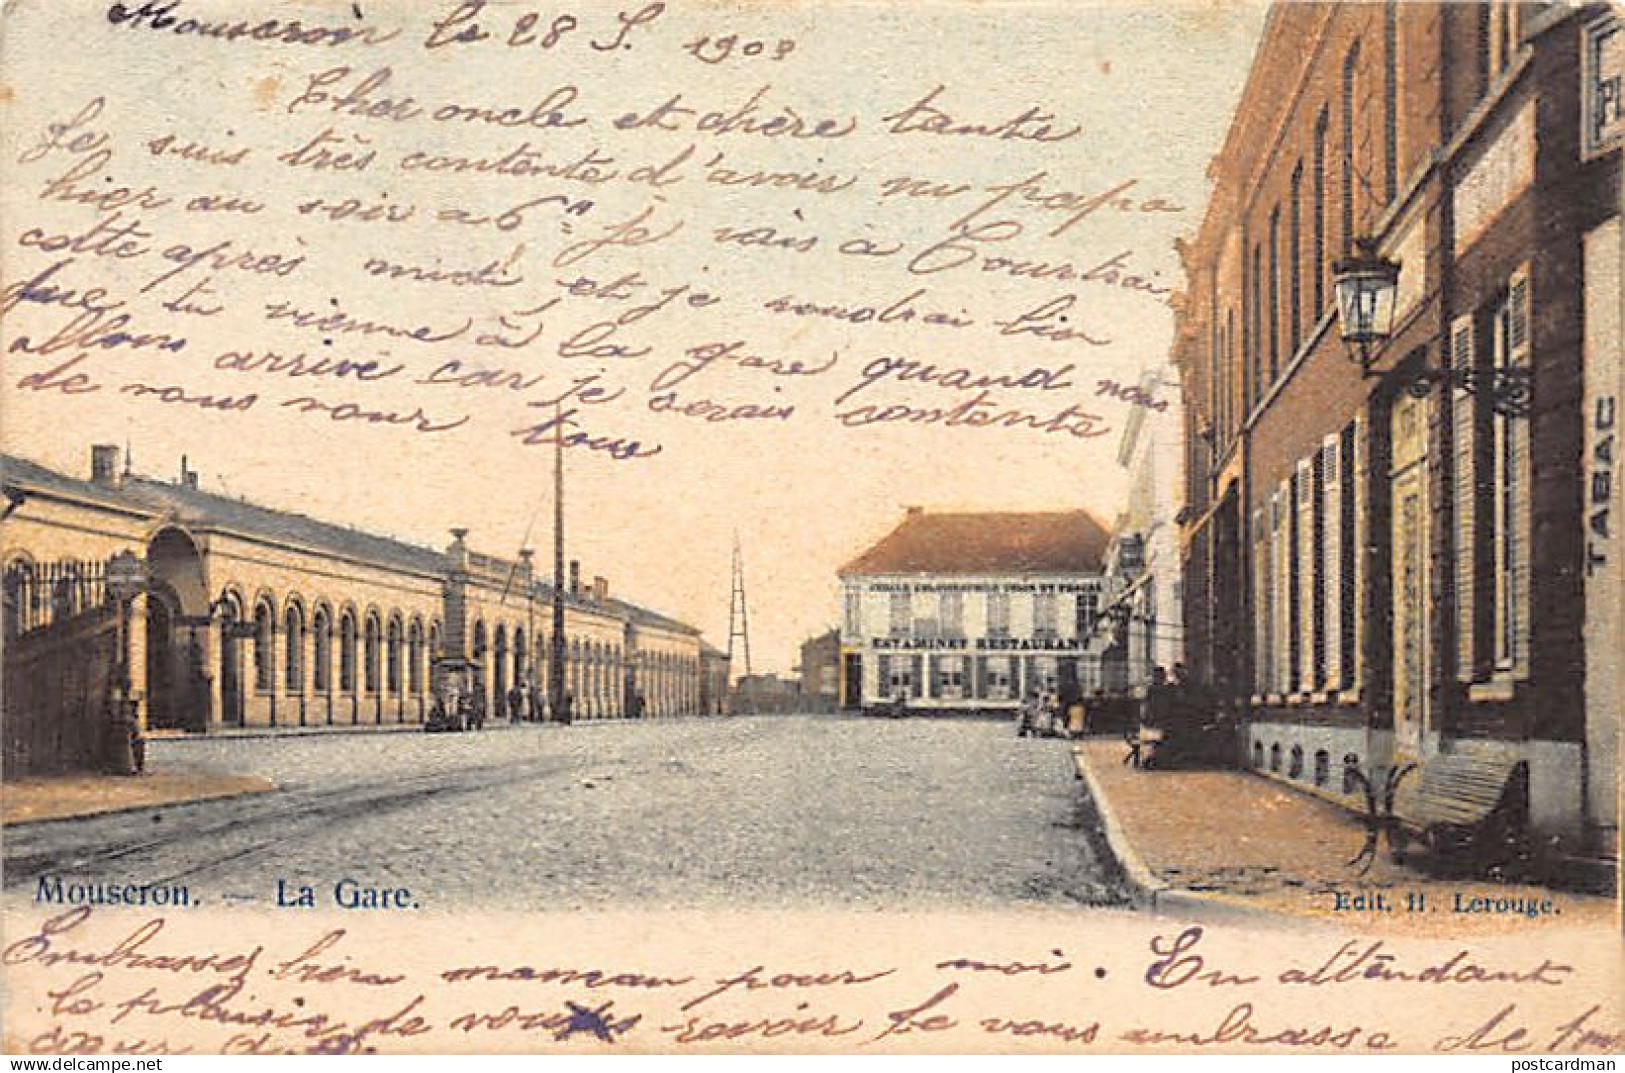 Mouscron le 28 S. 1903
Cher oncle et chère tante
Je suis très contente d'avoir vu papa
hier au soir a 6 h je vais à Courtrai
cette après midi et je voudrai bien
que tu vienne à la gare quand nous
allons arrivé car je serais contente
de vous voir tous
CERCLE COLOMBOPHILE UNION ET PROGRES
ESTAMINET RESTAURANT
TABAC
Mouscron. — La Gare.
Edit. H. Lerouge.
Embrassez bien maman pour moi. En attendant
le plaisir de vous revoir Je vous embrasse de tout
cœur
postcardman